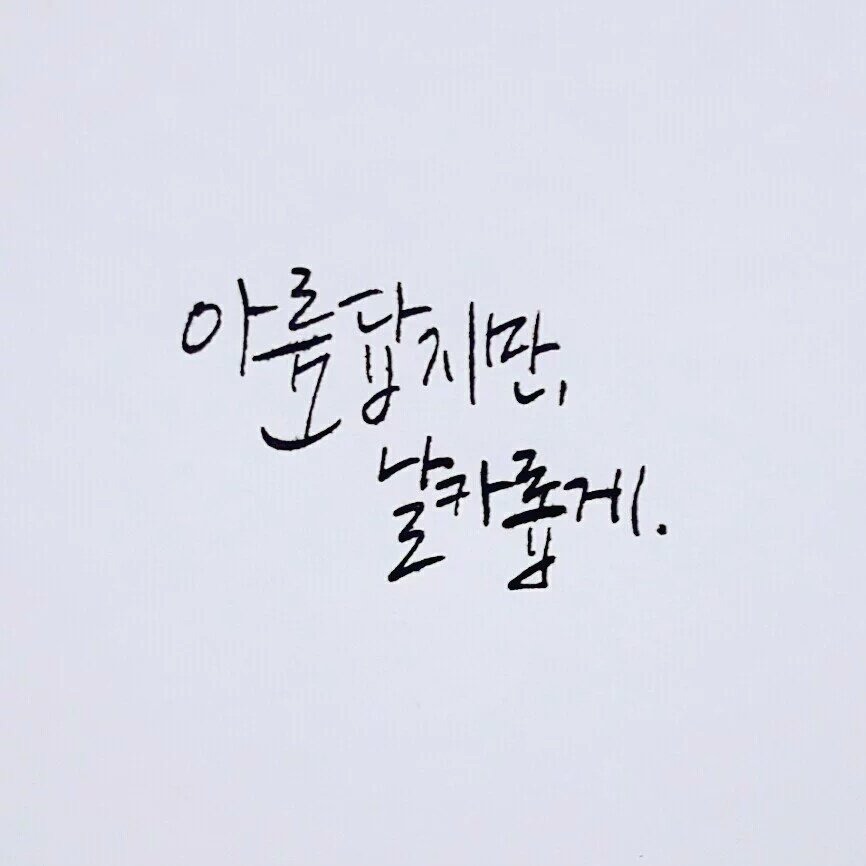 아름답지만,
날카롭게.